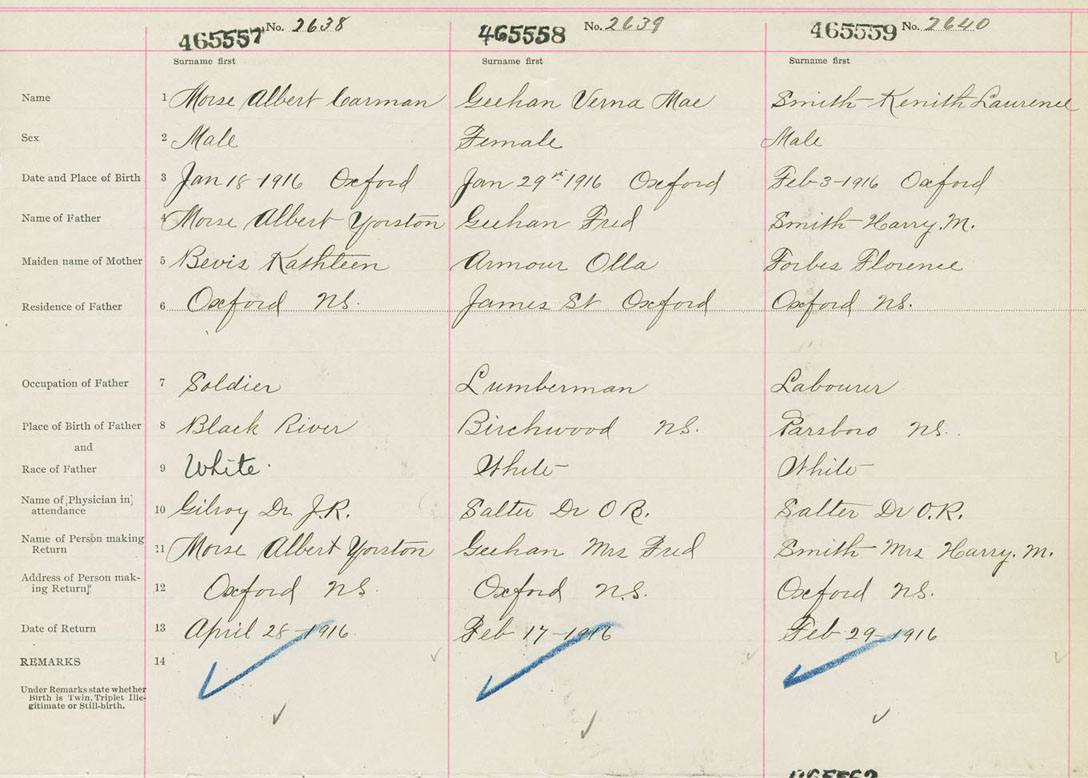 465557 No. 2638 465558 No. 2639 465559 No. 2640
Surname first Surname first Surname first
Name 1 Morse Albert Carman Geehan Verna Mae Smith Kenith Laurence
Sex 2 Male Female Male
Date and Place of Birth 3 Jan 18-1916 Oxford Jan 29th 1916 Oxford Feb 3-1916 Oxford
Name of Father 4 Morse Albert Yorston Geehan Fred Smith Harry. M.
Maiden name of Mother 5 Bevis Kathleen Armour Olla Forbes Florence
Residence of Father 6 Oxford NS. James St Oxford Oxford NS.
Occupation of Father 7 Soldier Lumberman Labourer
Place of Birth of Father 8 Black River Birchwood NS. Parsboro NS.
and
Race of Father 9 White. White White
Name of Physician in attendance 10 Gilroy Dr J.R. Salter Dr O R. Salter Dr O.R.
Name of Person making Return 11 Morse Albert Yorston Geehan Mrs Fred Smith Mrs Harry. M.
Address of Person mak-ing Return 12 Oxford NS. Oxford N.S. Oxford NS.
Date of Return 13 April 28-1916 Feb 17-1916 Feb 29-1916
REMARKS 14
Under Remarks state whether
Birth is Twin, Triplet Ille-
gitimate or Still-birth.